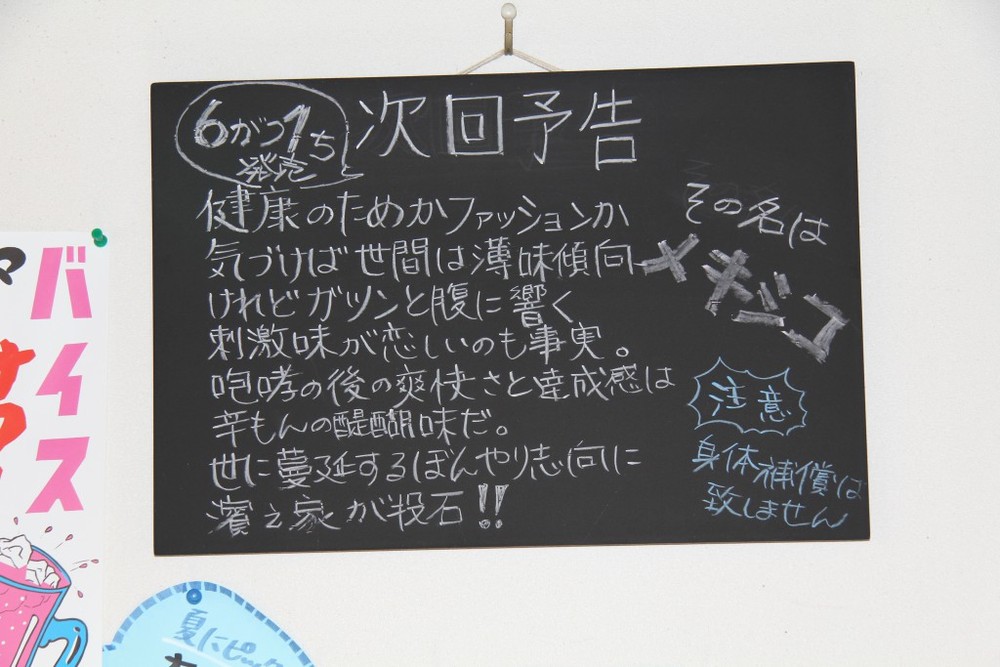 6がつ1ち
発売
次回予告
健康のためかファッションか
気づけば世間は薄味傾向
けれどガツンと腹に響く
刺激味が恋しいのも事実。
咆哮の後の爽快さと達成感は
辛もんの醍醐味だ。
世に蔓延するぼんやり志向に
濱之家が投石!!
その名は
メキシコ
注意
身体補償は
致しません
バイス
夏にピッタ